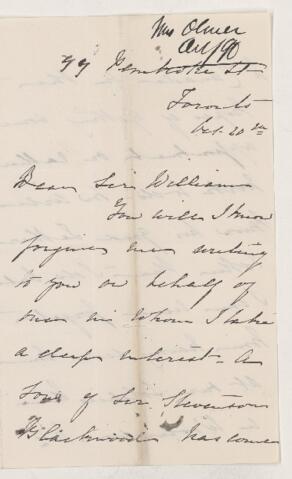 Mrs Oliver
Oct/90
Pembroke St
Toronto
Oct. 20th
Dear Sir William
You will I know
forgive me writing
to you on behalf of
one in whom I take
a deep interest - A
Son of Sir Stevenson
Blackwood has come